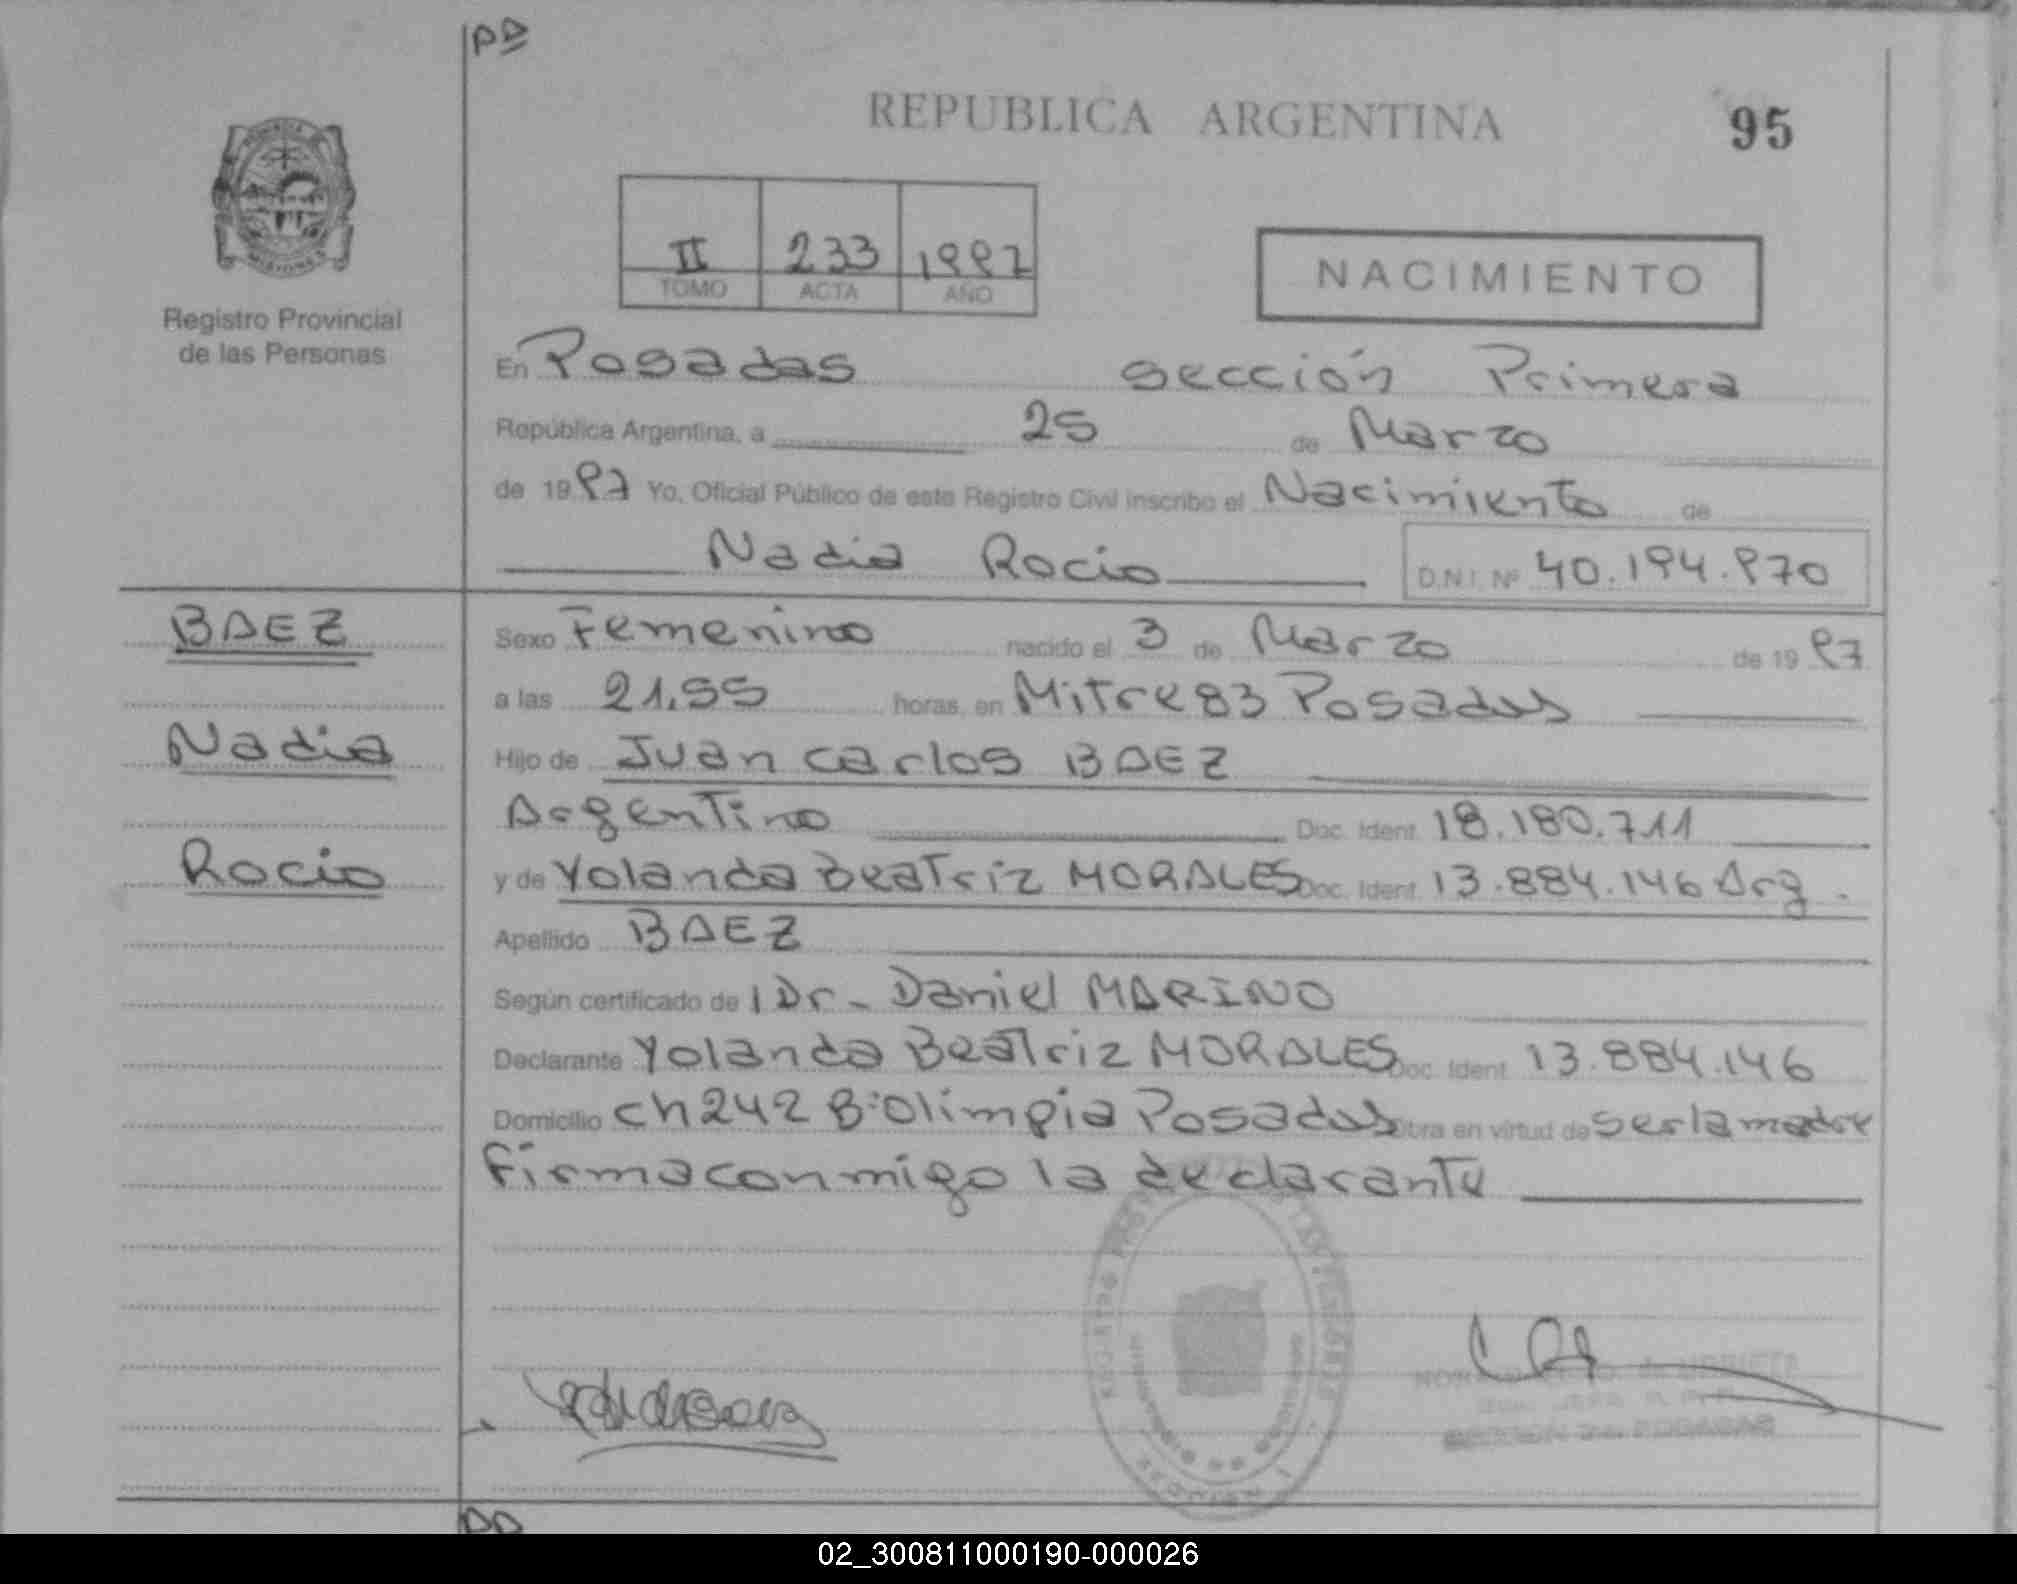 PD
REPUBLICA ARGENTINA
95
II 233 1997
TOMO ACTA AÑO
NACIMIENTO
Registro Provincial
de las Personas
En Posadas sección Primera
República Argentina, a 25 de Marzo
de 1997 Yo, Oficial Público de este Registro Civil inscribo el Nacimiento de
Nadia Rocio D.N.I. Nº 40.194.970
BAEZ
Nadia
Rocio
Sexo Femenino nacido el 3 de Marzo de 1997
a las 21,55 horas, en Mitre 83 Posadas
Hijo de Juan Carlos BAEZ
Argentino Doc. Ident. 18.180.711
y de Yolanda Beatriz MORALES Doc. Ident. 13.884.146 Arg.
Apellido BAEZ
Según certificado de l Dr- Daniel MARINO
Declarante Yolanda Beatriz MORALES Doc. Ident. 13.884.146
Domicilio ch 242 B: Olimpia Posadas Obra en virtud de ser la madre
Firma conmigo la declarante
PD
02_300811000190-000026